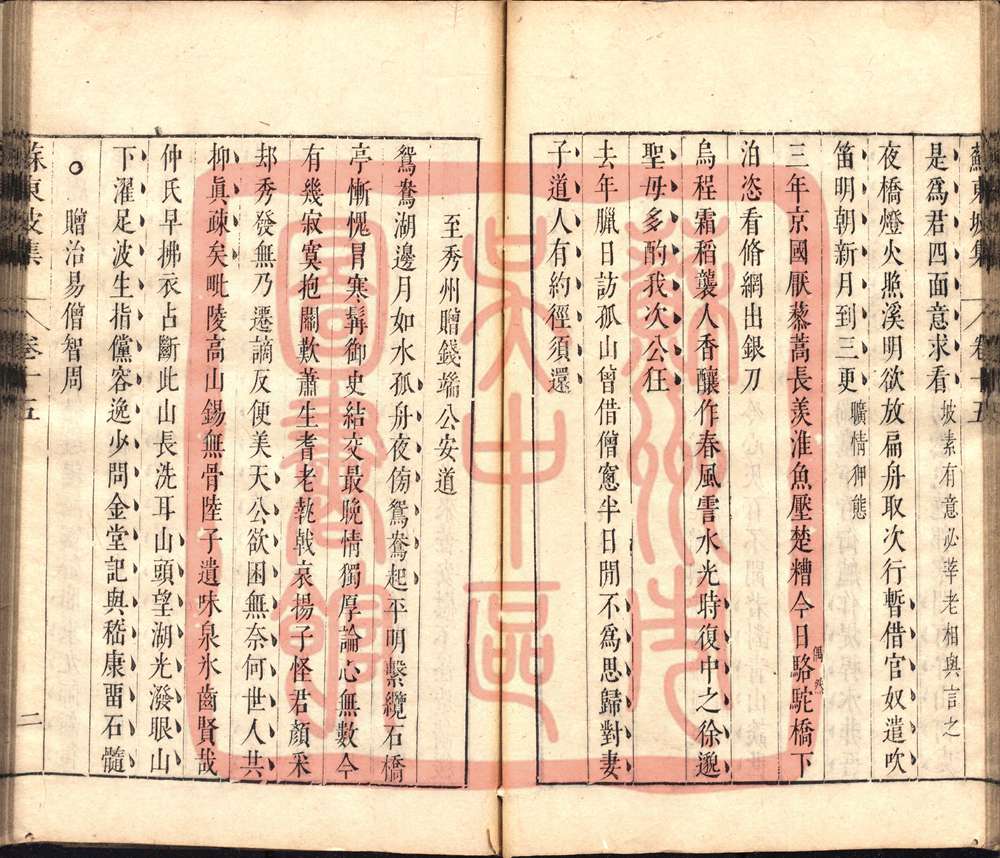 蘇東坡集 卷十五
是爲君四面意求看 坡素有意必莘老相與言之
夜橋燈火照溪明欲放扁舟取次行暫借官奴遣吹
笛明朝新月到三更 曠情狎態
三年京國厭藜蒿長羨淮魚壓楚糟今日駱駝橋下
偶然
泊恣看脩網出銀刀
烏程霜稻襲人香釀作春風霅水光時復中之徐邈
聖毋多酌我次公狂
去年臘日訪孤山曾借僧窻半日閒不爲思歸對妻
子道人有約徑須還
至秀州贈錢端公安道
鴛鴦湖邊月如水孤舟夜傍鴛鴦起平明繫纜石橋
亭慚愧冒寒髯御史結交最晚情獨厚論心無數今
有幾寂寞抱關歎蕭生耆老執戟哀揚子怪君顏采
却秀發無乃遷謫反便美天公欲困無奈何世人共
抑眞疎矣毗陵高山錫無骨陸子遺味泉氷齒賢哉
仲氏早拂衣占斷此山長洗耳山頭望湖光潑眼山
下濯足波生指儻容逸少問金堂記與嵇康畱石髓
贈治易僧智周
蘇東坡集 卷十五 二
吳中區
圖書館